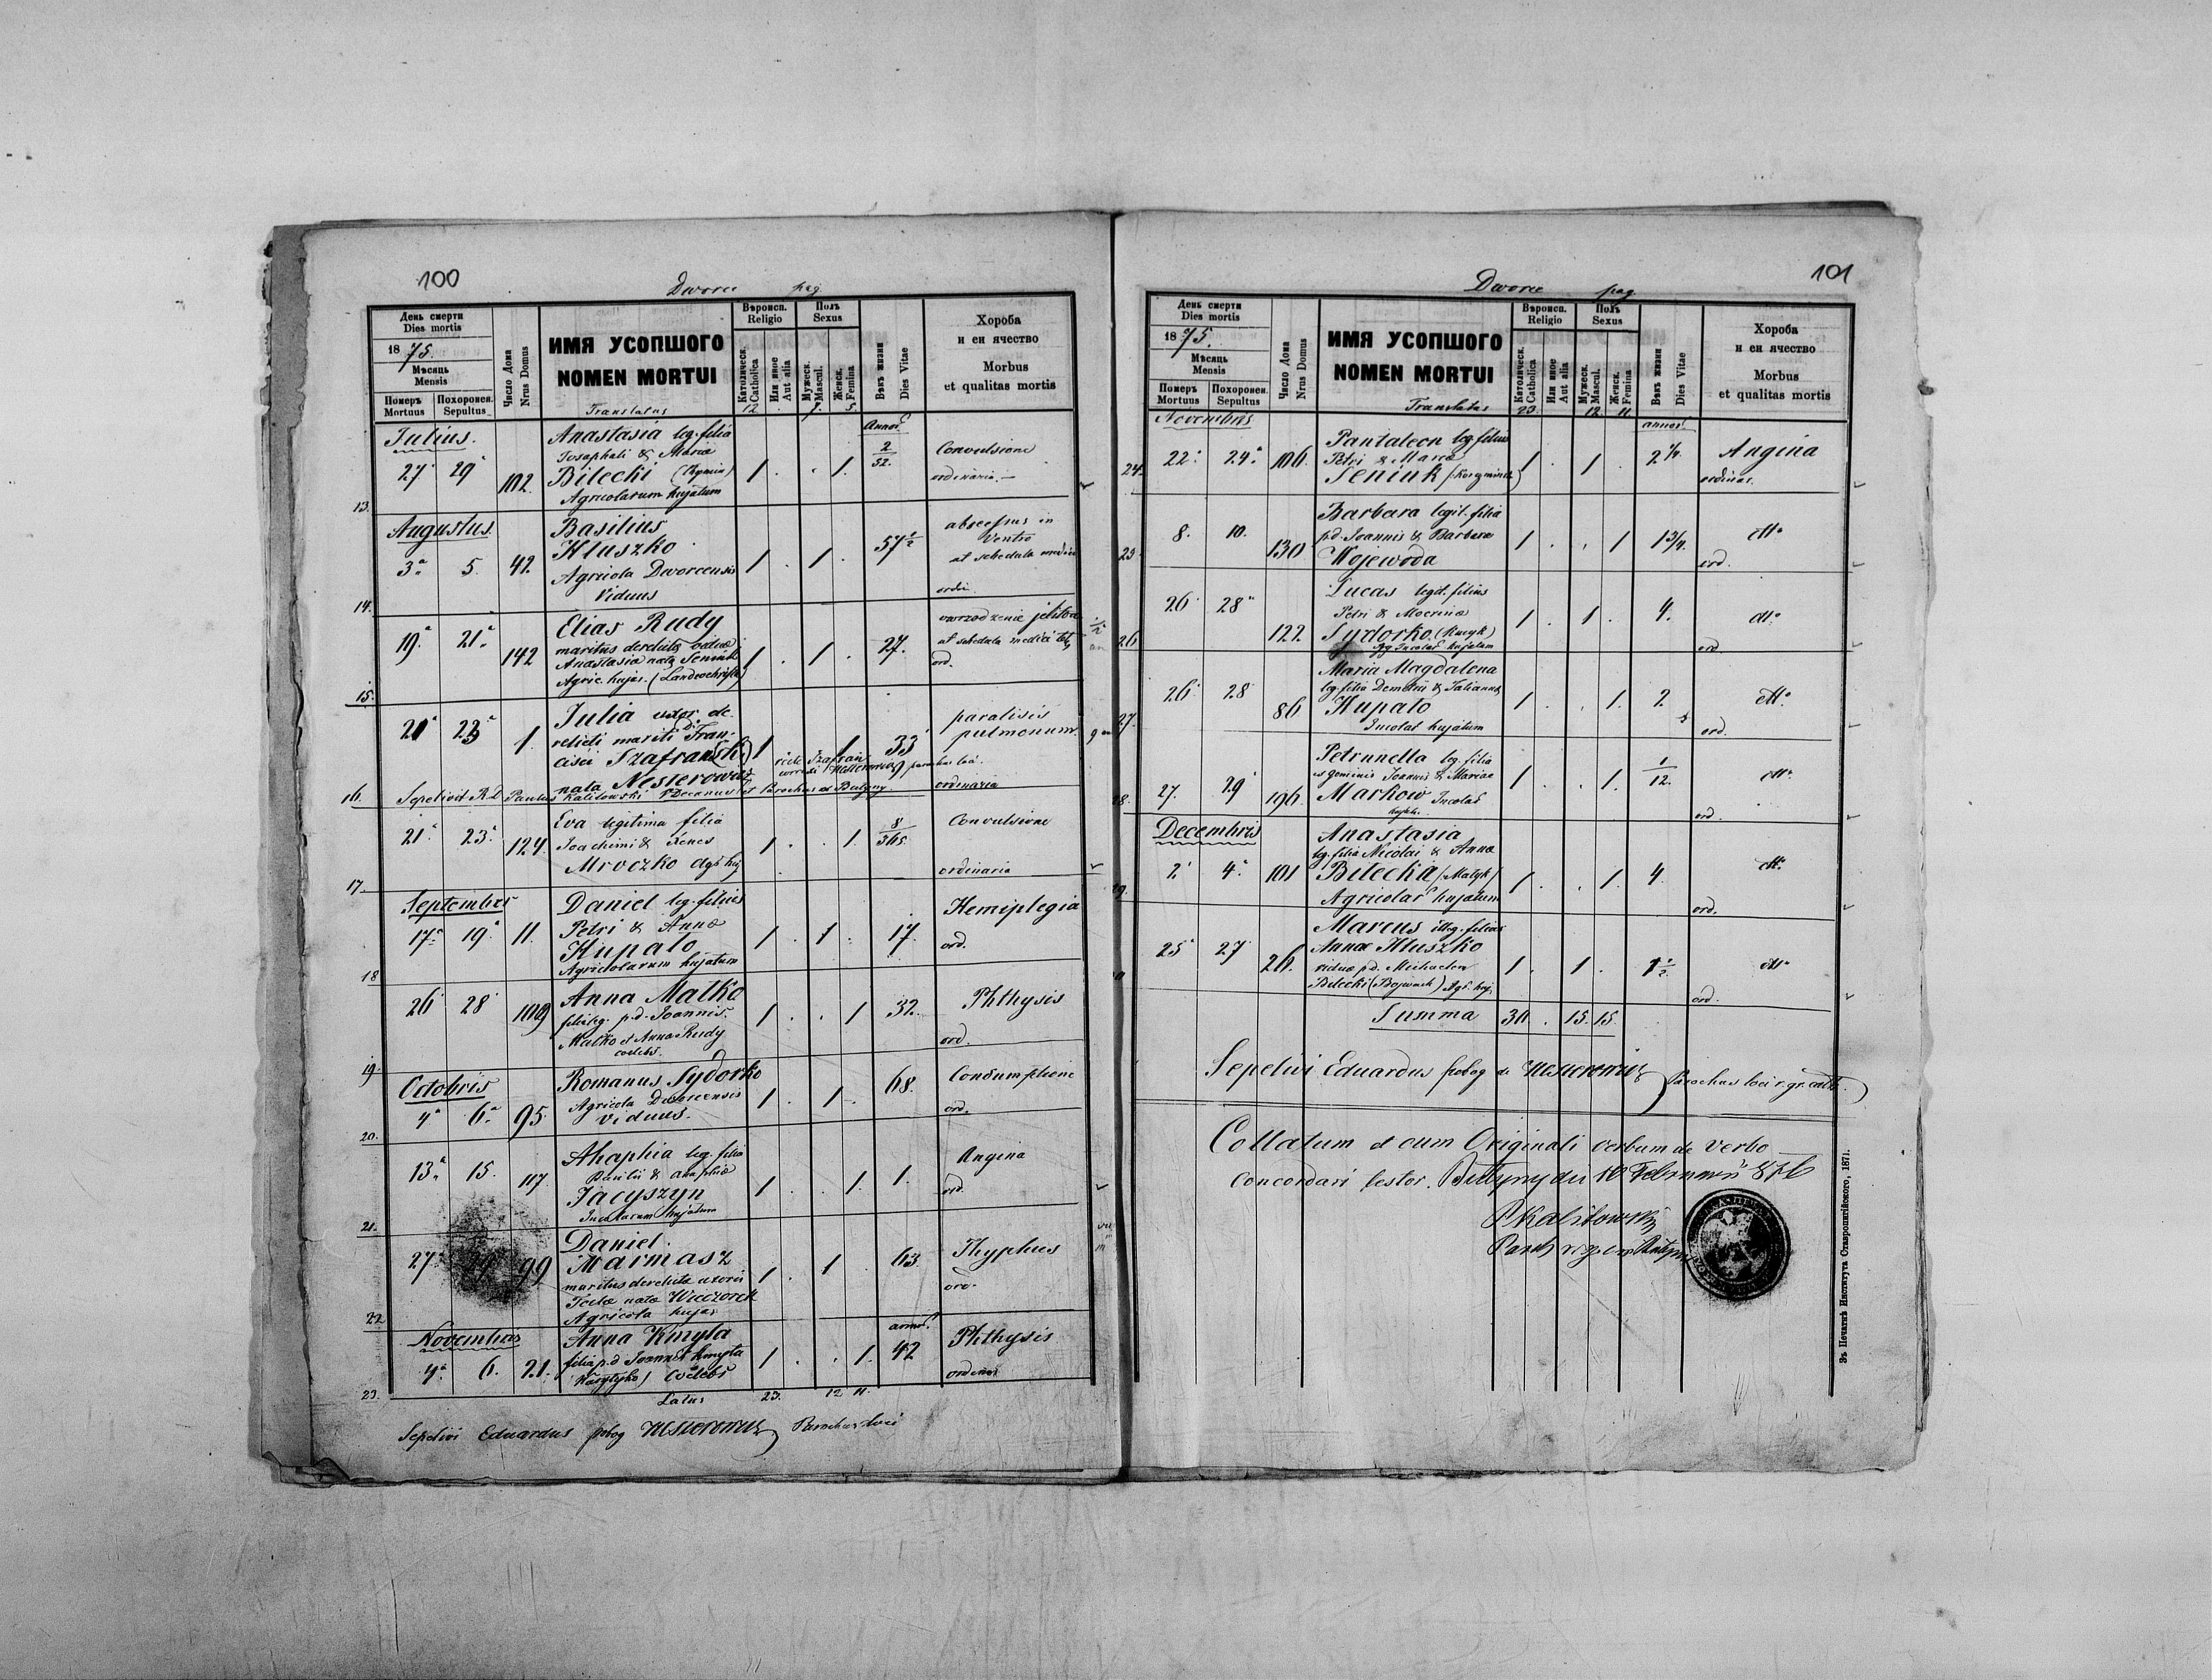 100
Dworce pag.
День смерти
Dies mortis
1875.
Мѣсяць
Mensis
Померъ
Mortuus
Похоронен.
Sepultus
Число Дома
Nrus Domus
ИМЯ УСОПШОГО
NOMEN MORTUI
Вѣроисп.
Religio
Католическ.
Catholica
Или иное
Aut alia
Полъ
Sexus
Мужеск.
Mascul.
Женск.
Femina
Вѣкъ жизни
Dies Vitae
Хороба
и еи ячество
Morbus
et qualitas mortis
Translatus 12 7. 5.
13.
Julius.
27 29 102.
Anastasia leg. filia
Josaphati & Maria
Bilecki
Agricolarum hujatum
1 . . 1.
Annor.
2/52.
Convulsione
ordinaria.
14.
Augustus.
3a 5. 42
Basilius
Hluszko
Agricola Dworcensis
Viduus
1 . 1 .
57 1/2
abscessus in
Ventre
ut schedula medici
ordin.
15.
19. 21. 142
Elias Rudy
maritus derelictae viduae
Anastasia nata Seniuk
Agric. hujas.
1 . 1 .
27.
ut schedula medici
ord.
16.
21 23 1.
Julia uxor de-
relicti mariti Fran-
cisci Szafrań(ski)
nata Nesterowicz
1 1 33
paralisis
pulmonum
ordinaria
Sepelivit R.D. Paulus Kalitowski V Decanus et Parochus ad Butyny.
17.
21. 23. 124.
Eva legitima filia
Joachimi & Xenes
Mroczko Agr. huj.
1 . . 1.
8/365.
Convulsione
ordinaria
18
Septembris
17. 19. 11.
Daniel leg. filius
Petri & Anna
Hupalo
Agricolarum hujatum
1 . 1 .
17.
Hemiplegia
ord.
19.
26 28 109
Anna Malko
filia leg. p.d. Joannis
Malko et Anna Rudy
coelebs.
1 . . 1
32.
Phthysis
ord.
20.
Octobris
4. 6. 95.
Romanus Sydorko
Agricola Dworcensis
viduus.
1 . 1 .
68.
Consumptione
ord.
21.
13. 15. 117
Ahaphia leg. filia
Basilii & Ahaphia
Jacyszyn
Incolarum hujatum
1 . . 1
1.
Angina
ord.
22.
27. 99
Daniel
Marmasz
maritus derelicta uxoris
Teclae nata Wieczorek
Agricola hujas
1 . 1 .
63.
Thyphus
ord.
23.
Novembris
4. 6. 21.
Anna Kmyta
filia p.d. Joannis Kmyta
coelebs
1 . . 1.
annor.
42
Phthysis
ordinar.
Latus 23. 12 11.
Sepelivi Eduardus Nesterowicz Parochus loci
101
Dworce pag.
День смерти
Dies mortis
1875.
Мѣсяць
Mensis
Померъ
Mortuus
Похоронен.
Sepultus
Число Дома
Nrus Domus
ИМЯ УСОПШОГО
NOMEN MORTUI
Вѣроисп.
Religio
Католическ.
Catholica
Или иное
Aut alia
Полъ
Sexus
Мужеск.
Mascul.
Женск.
Femina
Вѣкъ жизни
Dies Vitae
Хороба
и еи ячество
Morbus
et qualitas mortis
Translatus 23. 12. 11.
24.
Novembris
22. 24. 106.
Pantaleon leg. filius
Petri & Maria
Seniuk
1 . 1 .
annor.
2 1/4.
Angina
ordinar.
25
8. 10. 130
Barbara legit. filia
p.d. Joannis & Barbara
Wojewoda
1 . . 1
1 3/4.
dtto
ord.
26
26 28 122
Lucas legit. filius
Petri & Macrina
Sydorko
Incolar. hujatum
1 . 1 .
4.
dtto
ord
27.
26 28 86
Maria Magdalena
leg. filia Demetrii & Tatianna
Hupalo
Incolar hujatum
1 . . 1.
2
dtto
ord.
28.
27. 29 196.
Petrunella leg. filia
ex geminis Joannis & Mariae
Markow Incolar
hujat.
1 . . 1.
1/12.
dtto
ord.
29.
Decembris
2 4. 101
Anastasia
leg. filia Nicolai & Anna
Bilecka (Malyk)
Agricolar hujatum
1 . . 1.
4.
dtto
ord.
25 27 26.
Marcus illeg. filius
Annae Hluszko
vidua p.d. Michaelem
Bilecki Agr. huj.
1 . 1 .
1 1/2.
dtto
ord.
Summa 30 . 15. 15.
Sepelivi Eduardus Nesterowicz Parochus loci r. gr. cath.
Collatum et cum Originali verbum de verbo
concordari testor. Butyny die 10 Februarii 876
PKalitowski
Зъ Печатнѣ Института Ставропигійского, 1871.